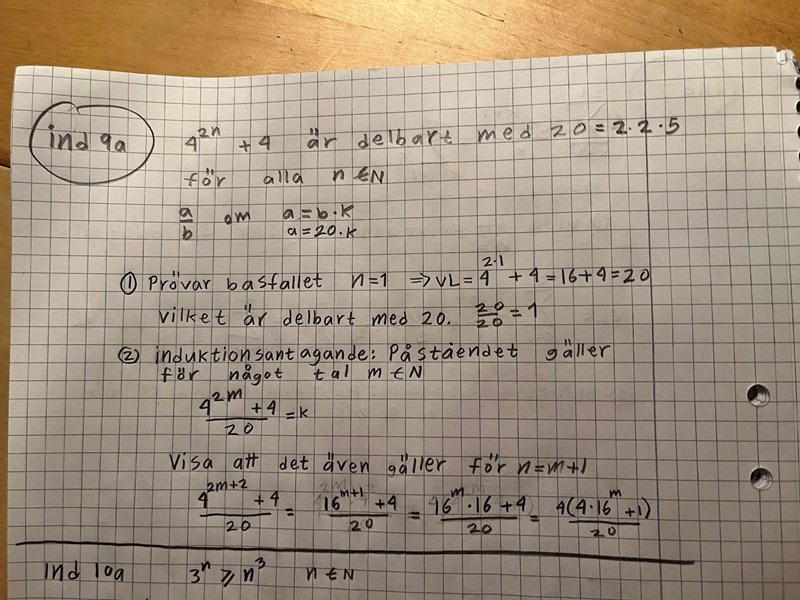 ind 9a
4^{2n} + 4 är delbart med 20 = 2·2·5
för alla n ∈ N
a/b om a = b·k
a = 20·k
① Prövar basfallet n=1 ⇒ VL = 4^{2·1} + 4 = 16+4 = 20
vilket är delbart med 20. 20/20 = 1
② induktionsantagande: Påståendet gäller
för något tal m ∈ N
(4^{2m} + 4)/20 = k
Visa att det även gäller för n=m+1
(4^{2m+2} + 4)/20 = (16^{m+1} + 4)/20 = (16^m · 16 + 4)/20 = 4(4·16^m + 1)/20
Ind 10a 3^n ⩾ n^3 n ∈ N